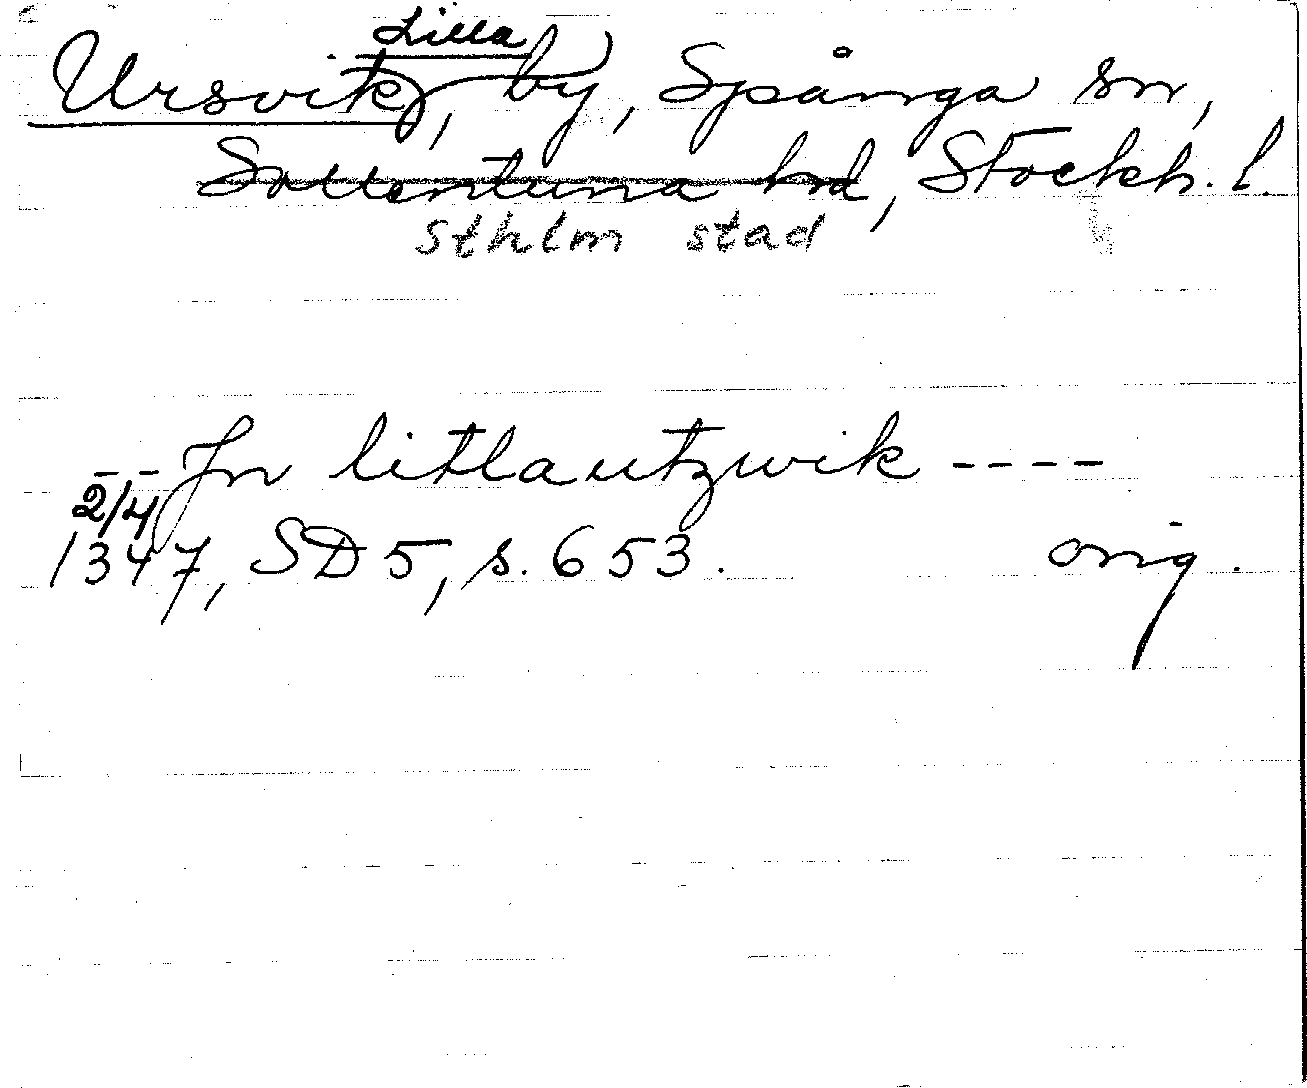 Lilla
Ursvik, by, Spånga sn,
Sollentuna hd, Stockh. l.
Sthlm stad
-- Jn litlautzwik ----
2/4
1347, SD 5, s. 653. orig.